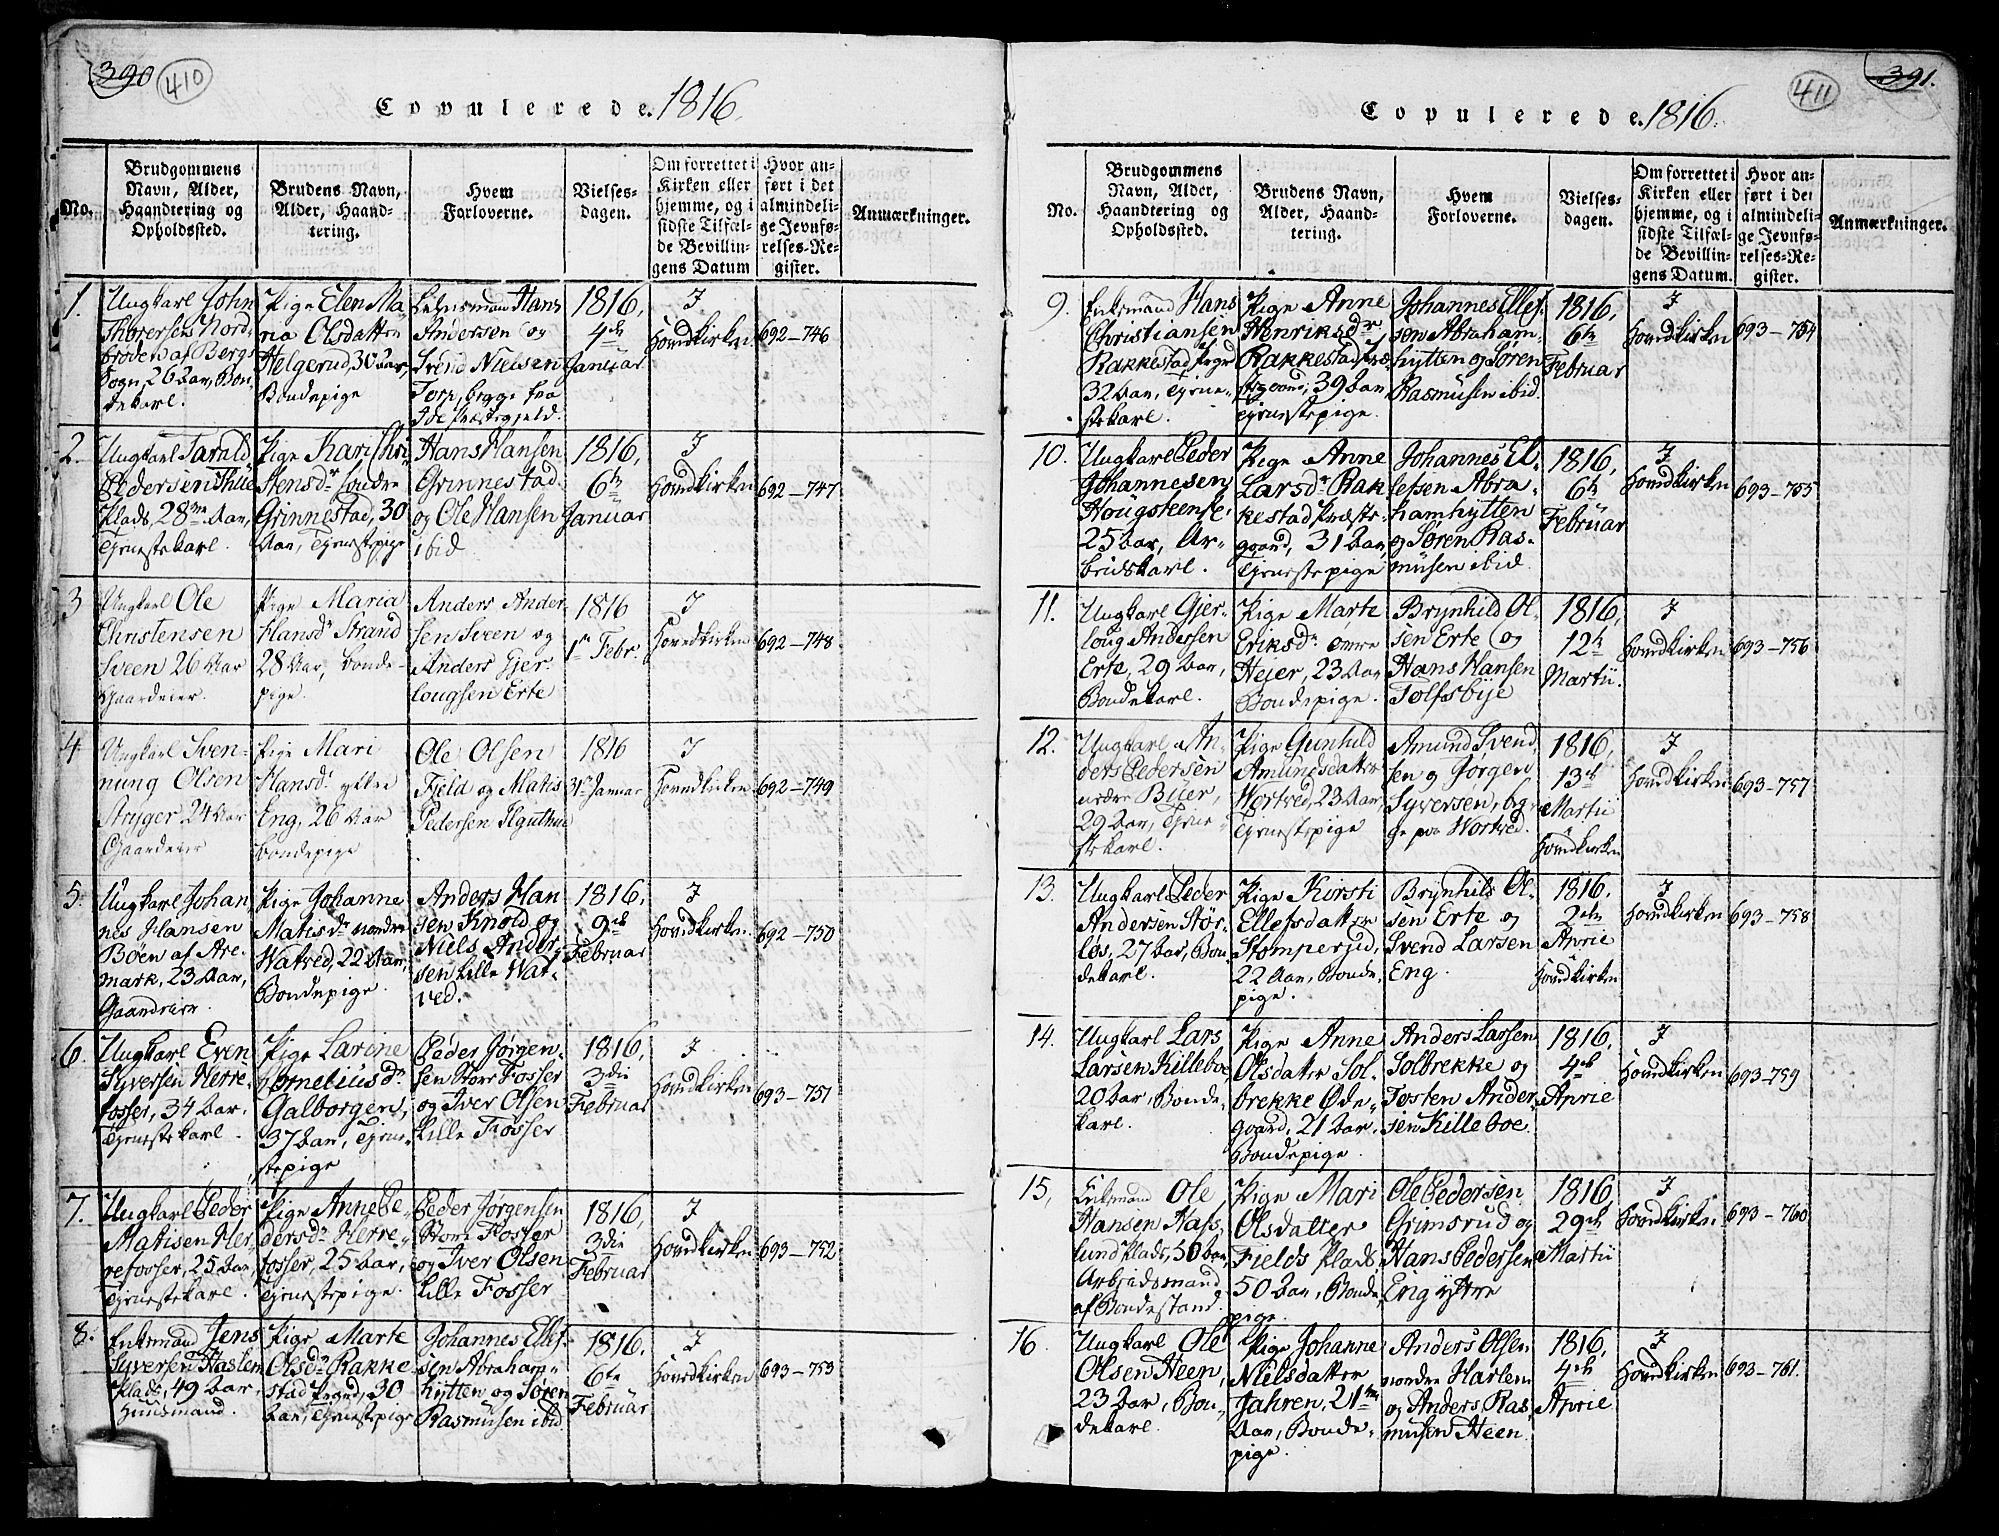 390
410
Copulerede. 1816.
No.
Brudgommens
Navn, Alder,
Haandtering og
Opholdssted.
Brudens Navn,
Alder, Haand-
tering.
Hvem
Forloverne.
Vielses-
dagen.
Om forrettet i
Kirken eller
hjemme, og i
sidste Tilfæl-
de Bevillin-
gens Datum
Hvor an-
ført i det
almindeli-
ge Jevnfø-
relses-Re-
gister.
Anmærkninger.
1.
Ungkarl John
Thoresen Nord-
broden af Bergs
Sogn, 26 Aar, Bon-
dekarl.
Pige Elen Ma
ria Olsdatter
Helgerud, 30 Aar,
Bondepige
Lensmand Hans
Andersen og
Svend Nielsen
Torp, begge fra
Ide Præstegjeld.
1816,
4de
Januar
I
Hovedkirken
692-746
2.
Ungkarl Tarald
Pedersen Thüe
Plads, 28 Aar,
Tjenestekarl.
Pige Kari Chri
stensdr søndre
Grinnestad, 30
Aar, Tjenestepige
Hans Hansen
Grinnestad
og Ole Hansen
ibid
1816,
6te
Januar
I
Hovedkirken
692-747
3
Ungkarl Ole
Christensen
Sveen 26 Aar
Gaardeier.
Pige Maria
Hansdr Strand
28 Aar, bonde-
pige.
Anders Ander-
sen Sveen og
Anders Gjer-
lougsen Erte
1816
1te Febr.
I
Hovedkirken
692-748
4
Ungkarl Sven-
nung Olsen
Stryger 24 Aar
Gaardeier
Pige Mari
Hansdr ydtre
Eng, 26 Aar
bondepige
Ole Olsen
Fjeld og Matis
Pedersen
1816
31te Januar
I
Hovedkirken
692-749
5.
Ungkarl Johan,
nes Hansen
Böen af Are-
mark, 23 Aar,
Gaardeier
Pige Johanne
Matisdr nordre
Watved, 22 Aar,
Bondepige.
Anders Han
sen Knold og
Niels Ander-
sen Lille Wat-
ved.
1816,
9de
Februar
I
Hovedkirken
692-750
6.
Ungkarl Even
Syversen Herre-
fosser, 34 Aar.
Tjenestekarl.
Pige Larine
Corneliusdr
Galborgen,
37 Aar, Tjene-
stepige
Peder Jörgen-
sen Store Fosser
og Iver Olsen
Lille Fosser
1816,
3die
Februar
I
Hovedkirken
693-751
7.
Ungkarl Peder
Matisen Her-
refosser, 25 Aar,
Tjenestekarl.
Pige Anne Pe-
dersdr Herre-
fosser, 25 Aar,
Tjenestepige.
Peder Jörgensen
Store Fosser
og Iver Olsen
Lille Fosser
1816,
3die
Februar
I
Hovedkirken
693-752
8.
Enkemand Jens
Syversen Haslem
Plads, 49 Aar,
Huusmand.
Pige Marte
Olsdr Rakke
stad Prgrd, 30
Aar, Tjenestepige
Johannes Ellef-
sen Abraham-
hytten og Sören
Rasmusen ibid.
1816,
6te
Februar
I
Hovedkirken
693-753
411
391.
Copulerede. 1816.
No.
Brudgommens
Navn, Alder,
Haandtering og
Opholdssted.
Brudens Navn,
Alder, Haand-
tering.
Hvem
Forloverne.
Vielses-
dagen.
Om forrettet i
Kirken eller
hjemme, og i
sidste Tilfæl-
de Bevillin-
gens Datum.
Hvor an-
ført i det
almindeli-
ge Jevnfø-
relses-Re-
gister.
Anmærkninger.
9.
Enkemand Hans
Christiansen
Rakkestad Prgrd
32 Aar, Tjene-
stekarl.
Pige Anne
Henriksdr
Rakkestad Præ-
stegaard, 39 Aar
Tjenestepige.
Johannes Ellef-
sen Abraham-
hytten og Sören
Rasmusen ibid.
1816,
6te
Februar
I
Hovedkirken
693-754
10.
Ungkarl Peder
Johannesen
Hougsteense.
25 Aar, Ar-
beidskarl.
Pige Anne
Larsdr Rak
kestad Præste-
gaard, 31 Aar,
Tjenestepige
Johannes El-
lefsen Abra-
hamhytten
og Sören Ras-
musen ibid.
1816,
6te
Februar
I
Hovedkirken
693-755
11.
Ungkarl Gjer-
loug Andersen
Erte, 29 Aar,
Bondekarl.
Pige Marte
Eriksdr
Heier, 23 Aar
Bondepige.
Brynhild Ol-
sen Erte og
Hans Hansen
Tolfsbye
1816,
12te
Martii.
I
Hovedkirken
693-756
12.
Ungkarl An-
ders Pedersen
nedre Buer,
29 Aar, Tjene-
stekarl.
Pige Gunhild
Amundsdatter
Wortved, 23 Aar,
Tjenestepige
Amund Svend,
sen og Jörgen
Syversen, beg-
ge paa Wortved.
1816,
13de
Martii
Hovedkirken
I
Hovedkirken
693-757
13.
Ungkarl Peder
Andersen Stör-
lös, 27 Aar, Bon-
dekarl.
Pige Kirsti
Ellefsdatter
Stomperud,
22 Aar, Bonde-
pige.
Brynhild Ol-
sen Erte og
Svend Larsen
Eng.
1816,
2den
April
Hovedkirken
I
Hovedkirken
693-758
14.
Ungkarl Lars
Larsen Killeboe
20 Aar, Bonde-
karl.
Pige Anne
Olsdatter Sol-
brekke Öde-
gaard, 21 Aar.
Bondepige.
Anders Larsen
Solbrekke og
Tosten Ander-
sen Killeboe.
1816,
4de
April
I
Hovedkirken
693-759
15.
Enkemand Ole
Hansen Hafs-
lund Plads, 50 Aar,
Arbeidsmand
af Bondestand.
Pige Mari
Olsdatter
Fields Plads,
50 Aar, Bonde-
pige.
Ole Pedersen
Grimsrud og
Hans Pedersen
Eng ydtre
1816,
29de
Martii
I
Hovedkirken
693-760
16.
Ungkarl Ole
Olsen Heen,
23 Aar, Bon-
dekarl.
Pige Johanne
Nielsdatter
Jahren, 21
Aar, Bonde-
pige.
Anders Olsen
nordre Harlem
og Anders Ras-
musen Heen.
1816,
4de
April
I
Hovedkirken
693-761.